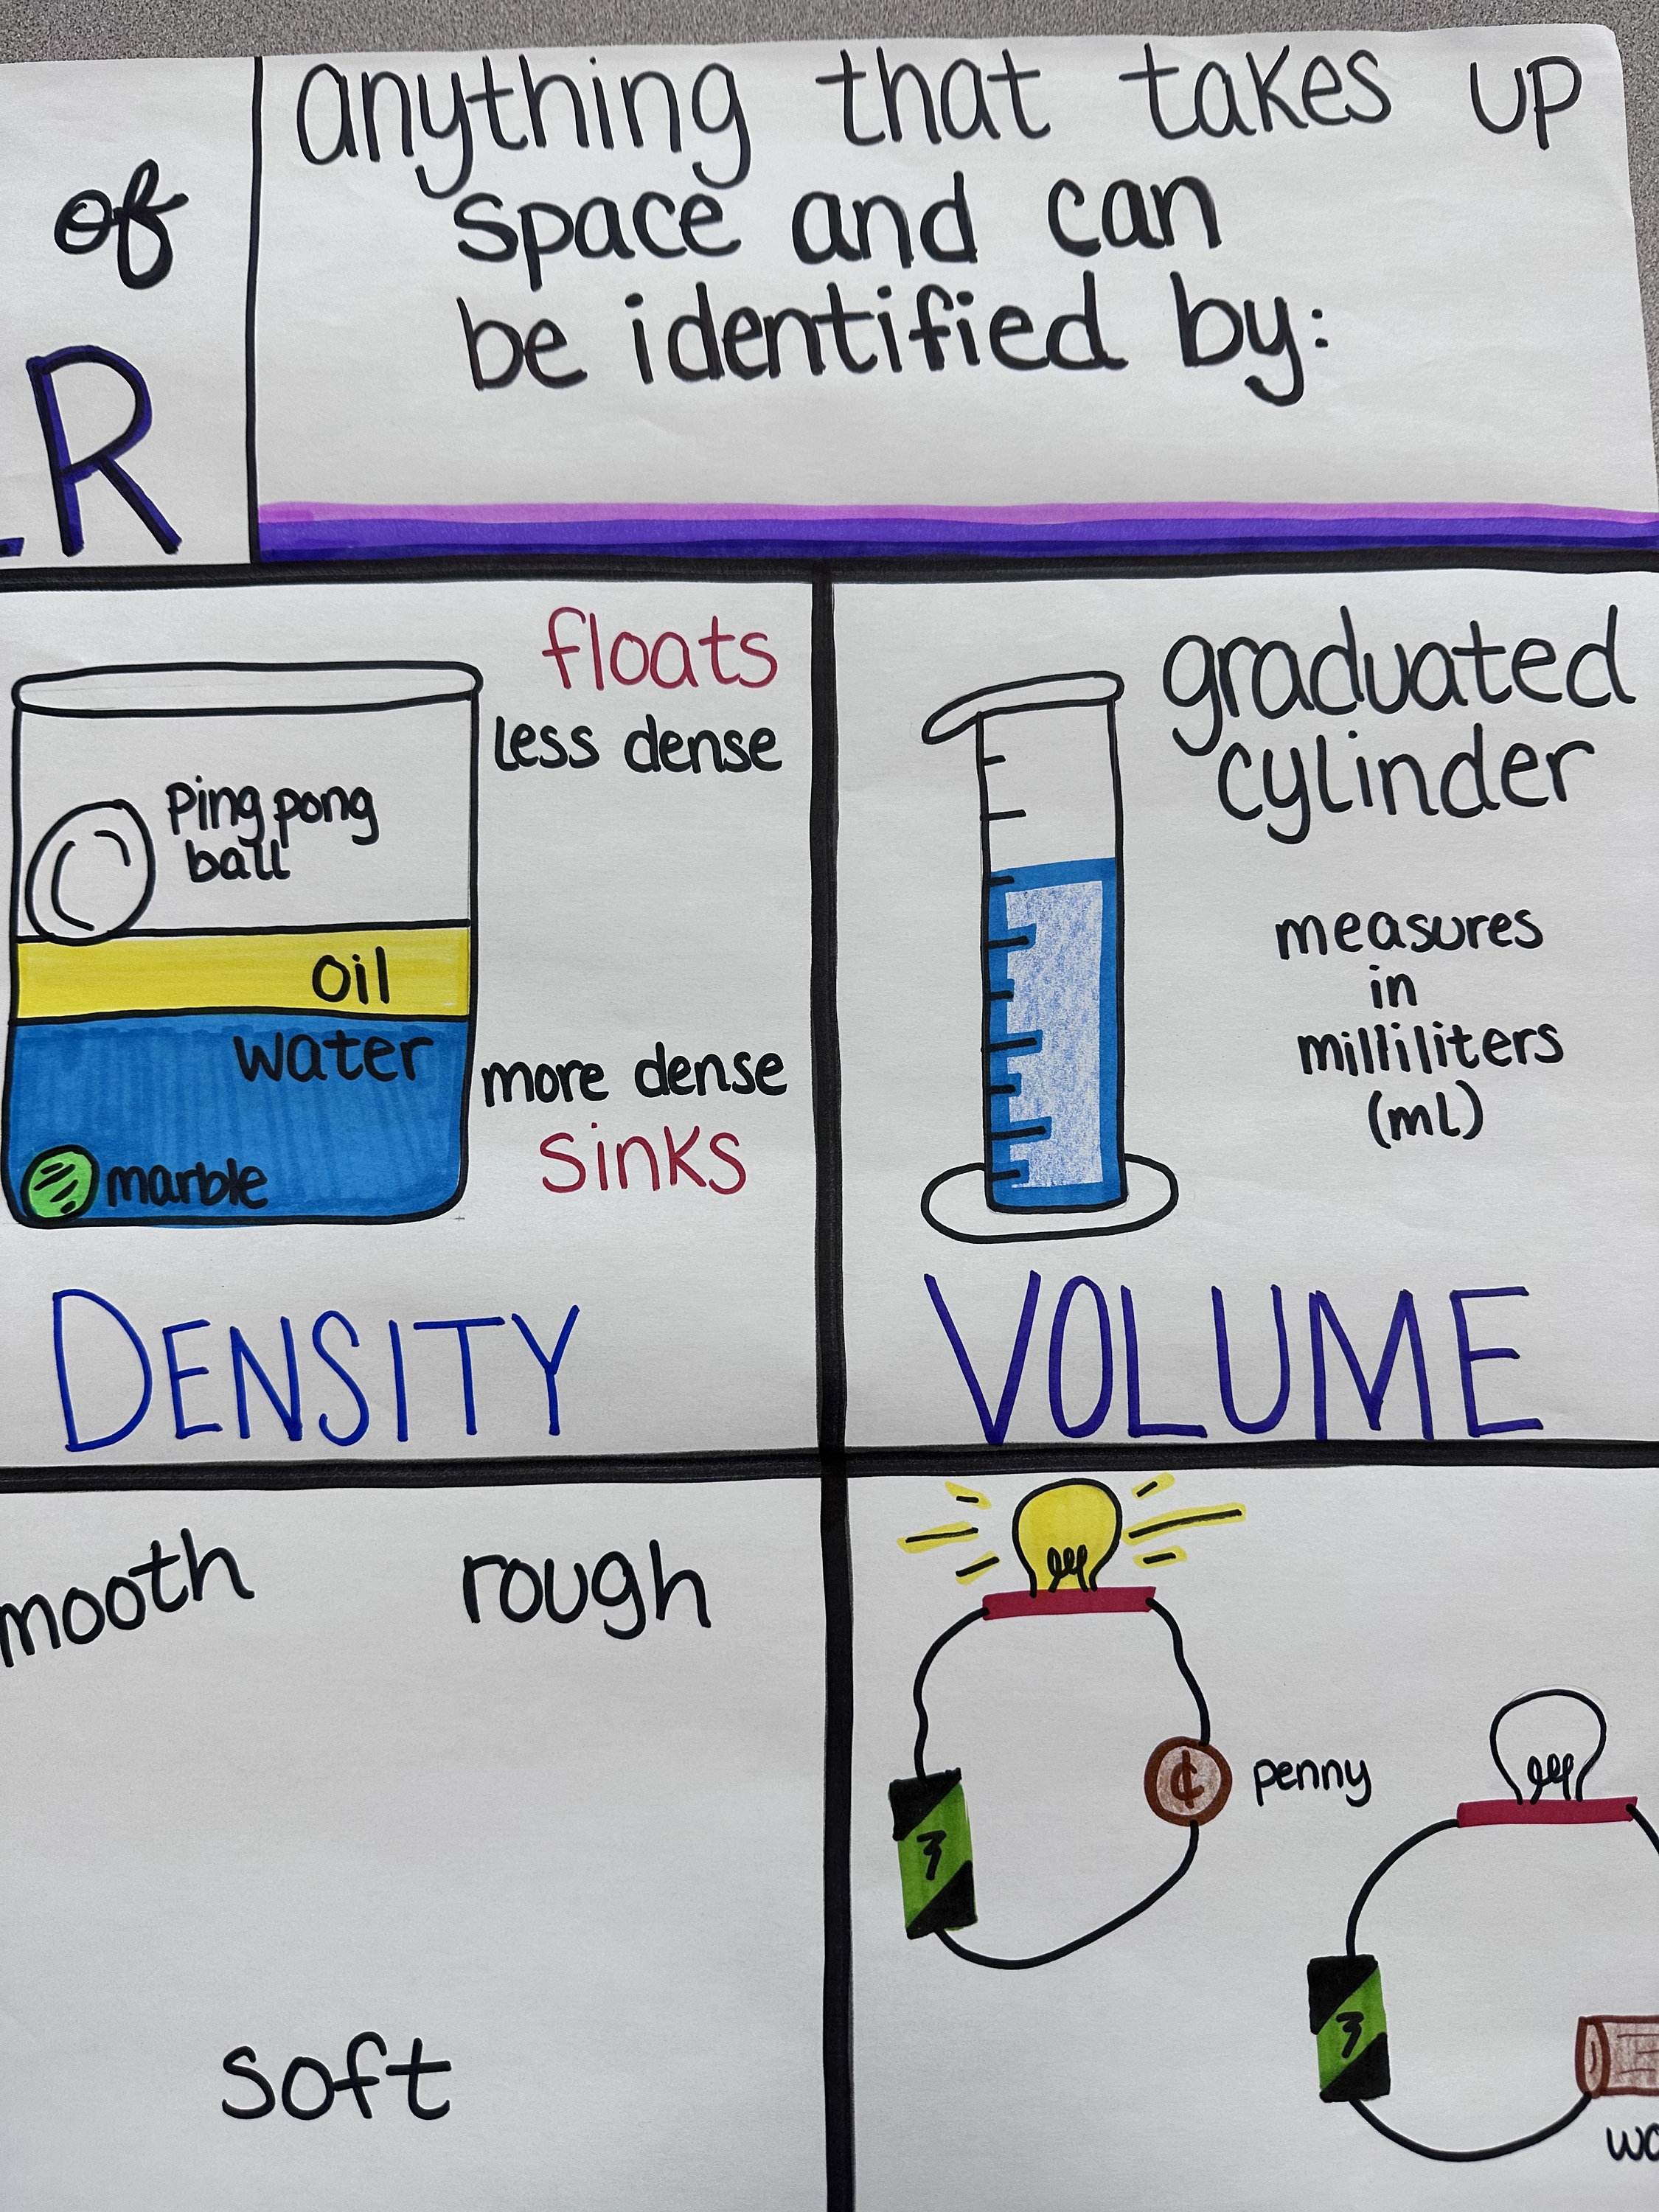 of
R
anything that takes up
space and can
be identified by:
floats
less dense
Ping pong
ball
oil
water
more dense
sinks
marble
DENSITY
graduated
cylinder
measures
in
milliliters
(mL)
VOLUME
mooth
rough
soft
¢
penny
wo